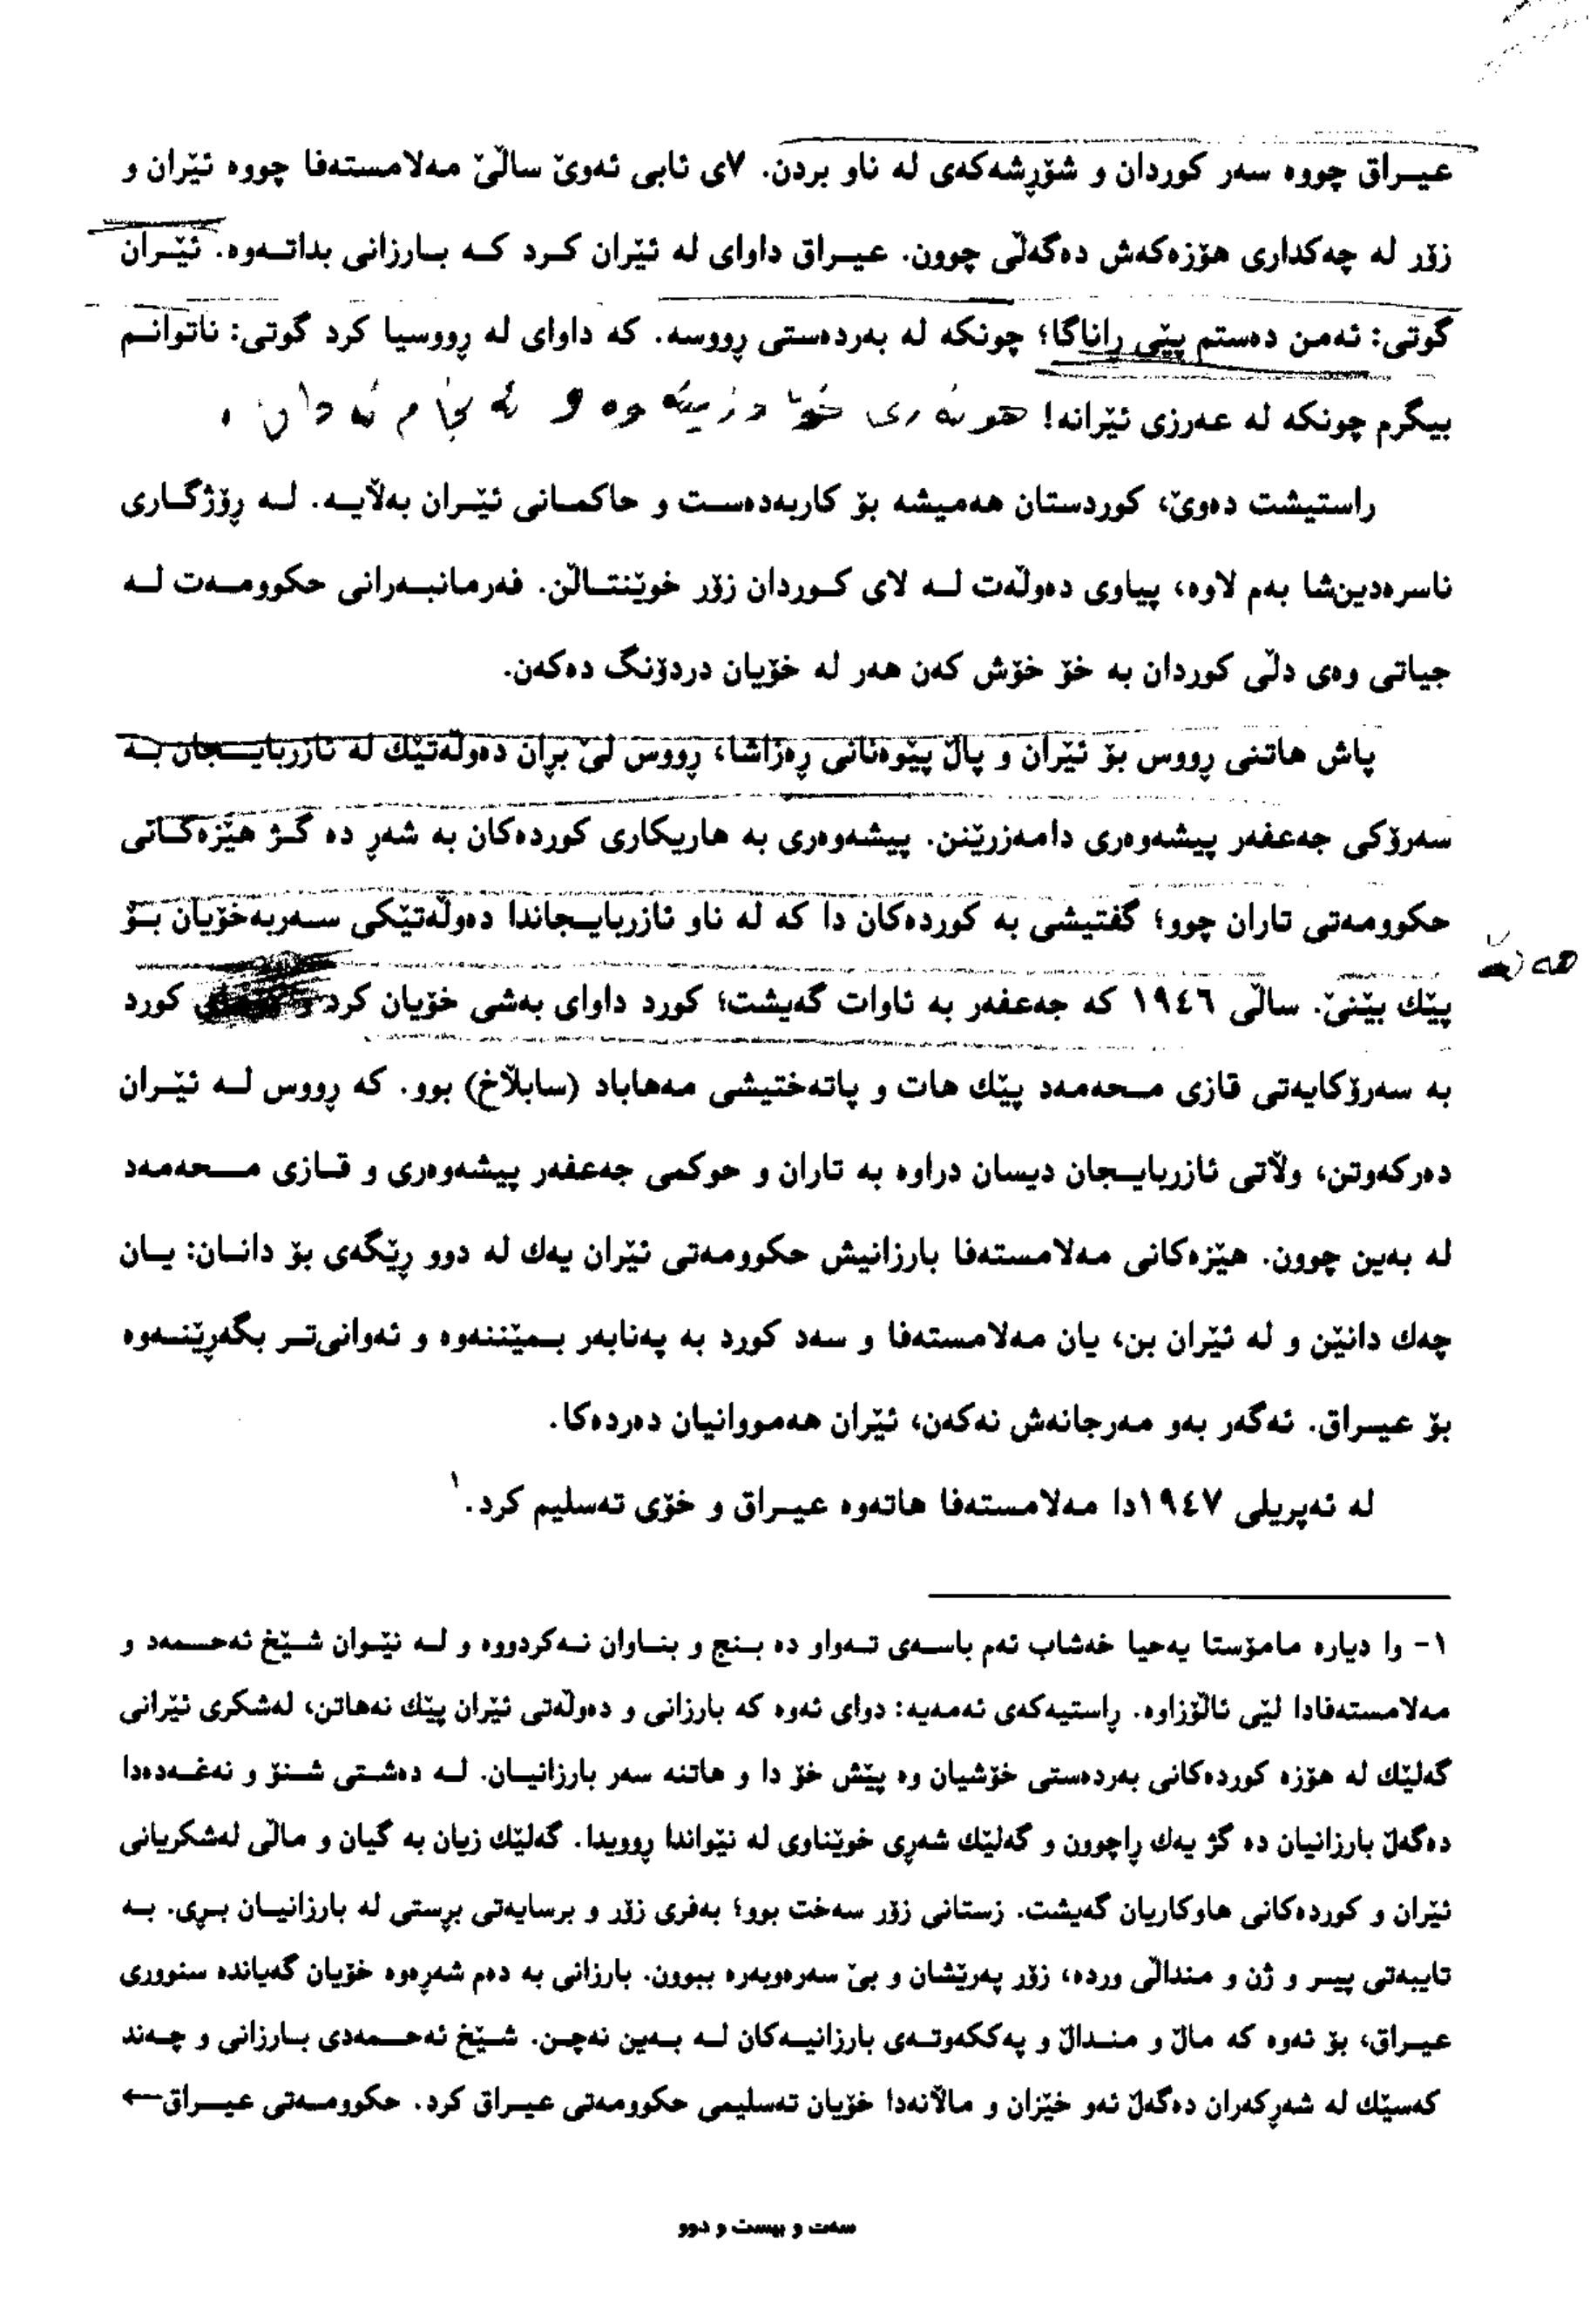 عیـراق چووه سەر کوردان و شۆڕشەکەی لە ناو بردن. ٧ی ئابی ئەوێ ساڵێ مەلامستەفا چووه ئێران و
زۆر لە چەکداری هۆزەکەش دەگەڵی چوون. عیـراق داوای لە ئێران کـرد کـە بـارزانی بداتـەوه. ئێـران
گوتی: ئەمـن دەستم پێی ڕاناگا؛ چونکە لە بەردەستی ڕووسە. کە داوای لە ڕووسیا کرد گوتی: ناتوانـم
بیگرم چونکە لە عەرزی ئێرانە! هونەری خۆ دزینەوە و ئەنجام نەدان.
راستیشت دەوێ، کوردستان هەمیشە بۆ کاربەدەسـت و حاکمـانی ئێـران بەڵایـە. لـە ڕۆژگـاری
ناسرەدین‌شا بەم لاوە، پیاوی دەوڵەت لـە لای کـوردان زۆر خوێنتـاڵن. فەرمانبـەرانی حکوومـەت لـە
جیاتی وەی دڵی کوردان بە خۆ خۆش کەن هەر لە خۆیان دردۆنگ دەکەن.
پاش هاتنی ڕووس بۆ ئێران و پاڵ پێوەنانی ڕەزاشا، ڕووس لێ بڕان دەوڵەتێك لە ئازربایـجان بـە
سەرۆکی جەعفەر پیشەوەری دامەزرێنن. پیشەوەری بە هاریکاری کوردەکان بە شەڕ دە گـژ هێزەکـانی
حکوومەتی تاران چوو؛ گفتیشی بە کوردەکان دا کە لە ناو ئازربایـجاندا دەوڵەتێکی سـەربەخۆیان بـۆ
پێك بێنێ. ساڵی ١٩٤٦ کە جەعفەر بە ئاوات گەیشت؛ کورد داوای بەشی خۆیان کرد کورد
بە سەرۆکایەتی قازی مـحەمەد پێك هات و پاتەختیشی مەهاباد (سابڵاخ) بوو. کە ڕووس لـە ئێـران
دەرکەوتن، وڵاتی ئازربایـجان دیسان دراوه بە تاران و حوکمی جەعفەر پیشەوەری و قـازی مـحەمەد
لە بەین چوون. هێزەکانی مەلامستەفا بارزانیش حکوومەتی ئێران یەك لە دوو ڕێگەی بۆ دانـان: یـان
چەك دانێن و لە ئێران بن، یان مەلامستەفا و سەد کورد بە پەنابەر بـمێننەوە و ئەوانی‌تـر بگەڕێنـەوە
بۆ عیـراق. ئەگەر بەو مەرجانەش نەکەن، ئێران هەمووانیان دەردەکا.
لە ئەپریلی ١٩٤٧دا مەلامستەفا هاتەوە عیـراق و خۆی تەسلیم کرد.١
١- وا دیارە مامۆستا یەحیا خەشاب ئەم باسـەی تـەواو دە بـنج و بنـاوان نـەکردووە و لـە نێـوان شـێخ ئەحـمەد و
مەلامستەفادا لێی ئاڵۆزاوە. ڕاستیەکەی ئەمەیە: دوای ئەوە کە بارزانی و دەوڵەتی ئێران پێك نەهاتن، لەشکری ئێرانی
گەلێك لە هۆزە کوردەکانی بەردەستی خۆشیان وە پێش خۆ دا و هاتنە سەر بارزانیـان. لـە دەشـتی شـنۆ و نەغـەدەدا
دەگەڵ بارزانیان دە گژ یەك ڕاچوون و گەلێك شەڕی خوێناوی لە نێواندا ڕوویدا. گەلێك زیان بە گیان و ماڵی لەشکریانی
ئێران و کوردەکانی هاوکاریان گەیشت. زستانی زۆر سەخت بوو؛ بەفری زۆر و برسایەتی برستی لە بارزانیـان بـڕی. بـە
تایبەتی پیـر و ژن و منداڵی وردە، زۆر پەرێشان و بێ سەرەوبەرە ببوون. بارزانی بە دەم شەڕەوە خۆیان گەیاندە سنووری
عیـراق، بۆ ئەوە کە ماڵ و منـداڵ و پەککەوتـەی بارزانیـەکان لـە بـەین نەچـن. شـێخ ئەحـمەدی بـارزانی و چـەند
کەسێك لە شەڕکەران دەگەڵ ئەو خێزان و ماڵانەدا خۆیان تەسلیمی حکوومەتی عیـراق کرد. حکوومـەتی عیـراق←
سەت و بیست و دوو